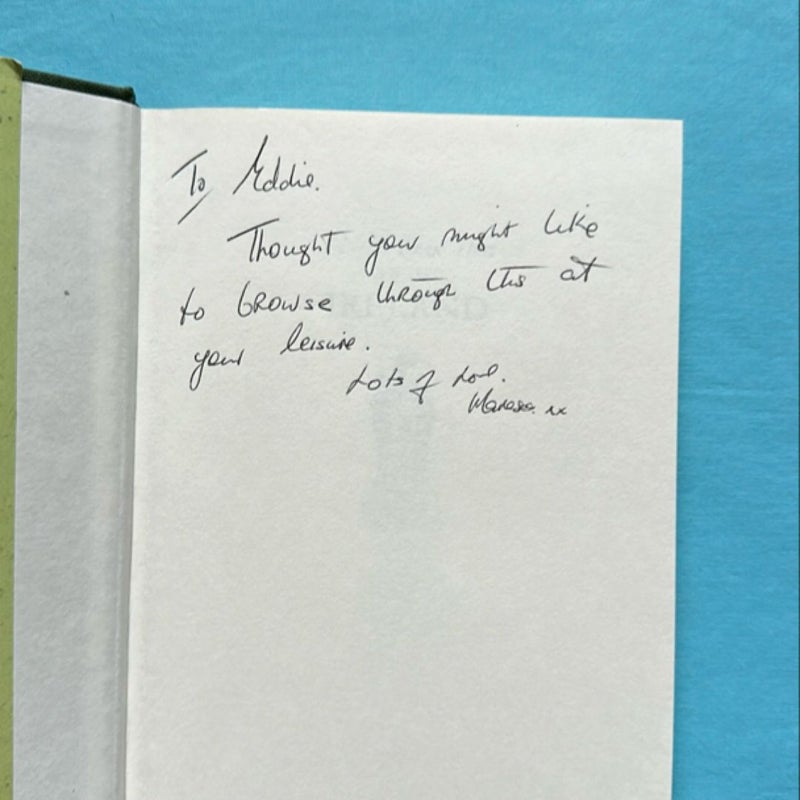 To Eddie.
Thought you might like
to browse through this at
your leisure.
Lots of love.
xx